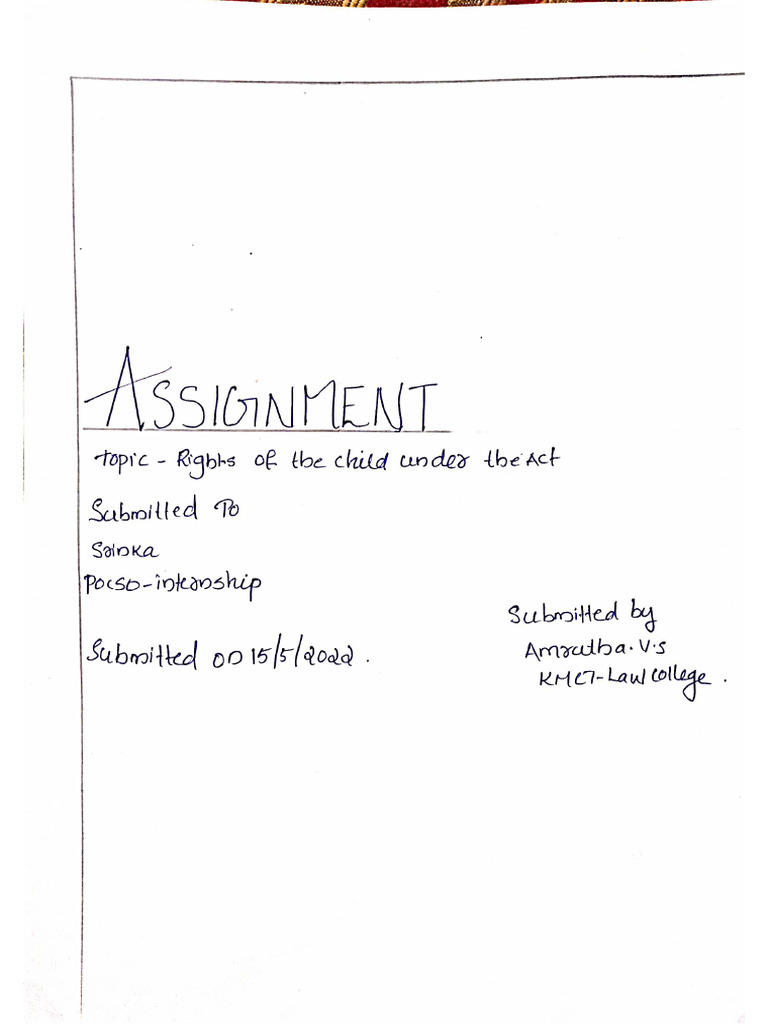 ASSIGNMENT
Topic - Rights of the child under the Act
Submitted To
Sainka
POCSO-internship
Submitted by
Amrutha.V.S
KMCT-Law College.
Submitted on 15/5/2022.